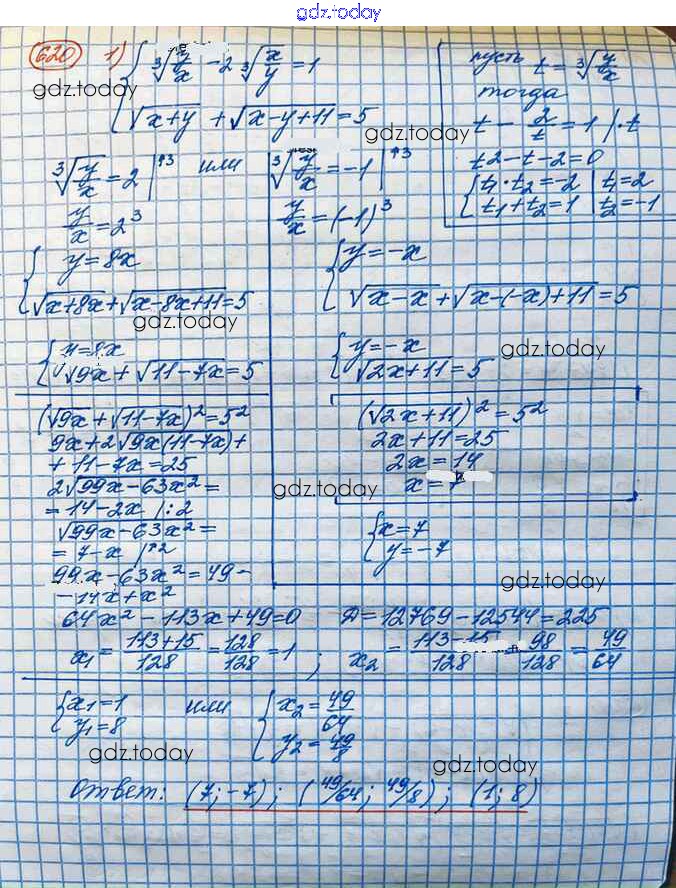 gdz.today
620 1) { ∛(y/x) - 2 ∛(x/y) = 1
√(x+y) + √(x-y+11) = 5
пусть t = ∛(y/x)
тогда
t - 2/t = 1 | · t
t2 - t - 2 = 0
{ t₁ · t₂ = -2 | t₁ = 2
t₁ + t₂ = 1 | t₂ = -1
gdz.today
gdz.today
∛(y/x) = 2 |↑3 или ∛(y/x) = -1 |↑3
y/x = 2³
y/x = (-1)³
{ y = 8x
√(x+8x) + √(x-8x+11) = 5
{ y = -x
√(x-x) + √(x-(-x)+11) = 5
gdz.today
{ y = 8x
√9x + √(11-7x) = 5
{ y = -x
√(2x+11) = 5
gdz.today
(√9x + √(11-7x))² = 5²
9x + 2√(9x(11-7x)) +
+ 11 - 7x = 25
2√(99x - 63x²) =
= 14 - 2x | : 2
√(99x - 63x²) =
= 7 - x |↑2
99x - 63x² = 49 -
- 14x + x²
(√(2x+11))² = 5²
2x + 11 = 25
2x = 14
x = 7
gdz.today
{ x = 7
y = -7
gdz.today
64x² - 113x + 49 = 0 Д = 12769 - 12544 = 225
x₁ = (113+15)/128 = 128/128 = 1 ; x₂ = (113-15)/128 = 98/128 = 49/64
{ x₁ = 1
y₁ = 8
или
{ x₂ = 49/64
y₂ = 49/8
gdz.today
gdz.today
Ответ: (7; -7); (49/64; 49/8); (1; 8)